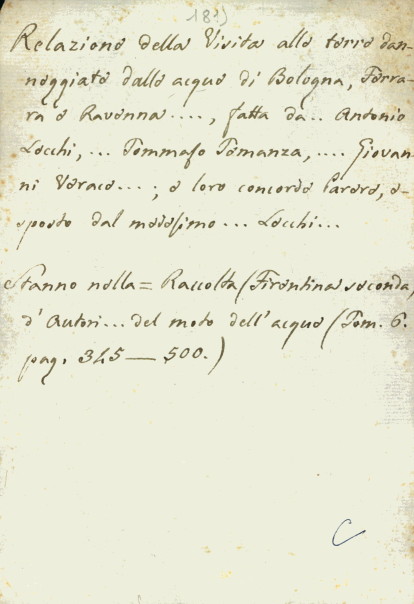 Relazione della Visita alle terre dan-
neggiate dalle acque di Bologna, Ferra-
ra e Ravenna...., fatta da.. Antonio
Lecchi,... Tommaso Temanza,.... Giovan-
ni Verace...; e loro concorde Parere, e-
sposto dal medesimo... Lecchi...
Stanno nella = Raccolta (Firentina seconda)
d'Autori... del moto dell'acque (Tom. 6.
pag. 345 — 500.)
C